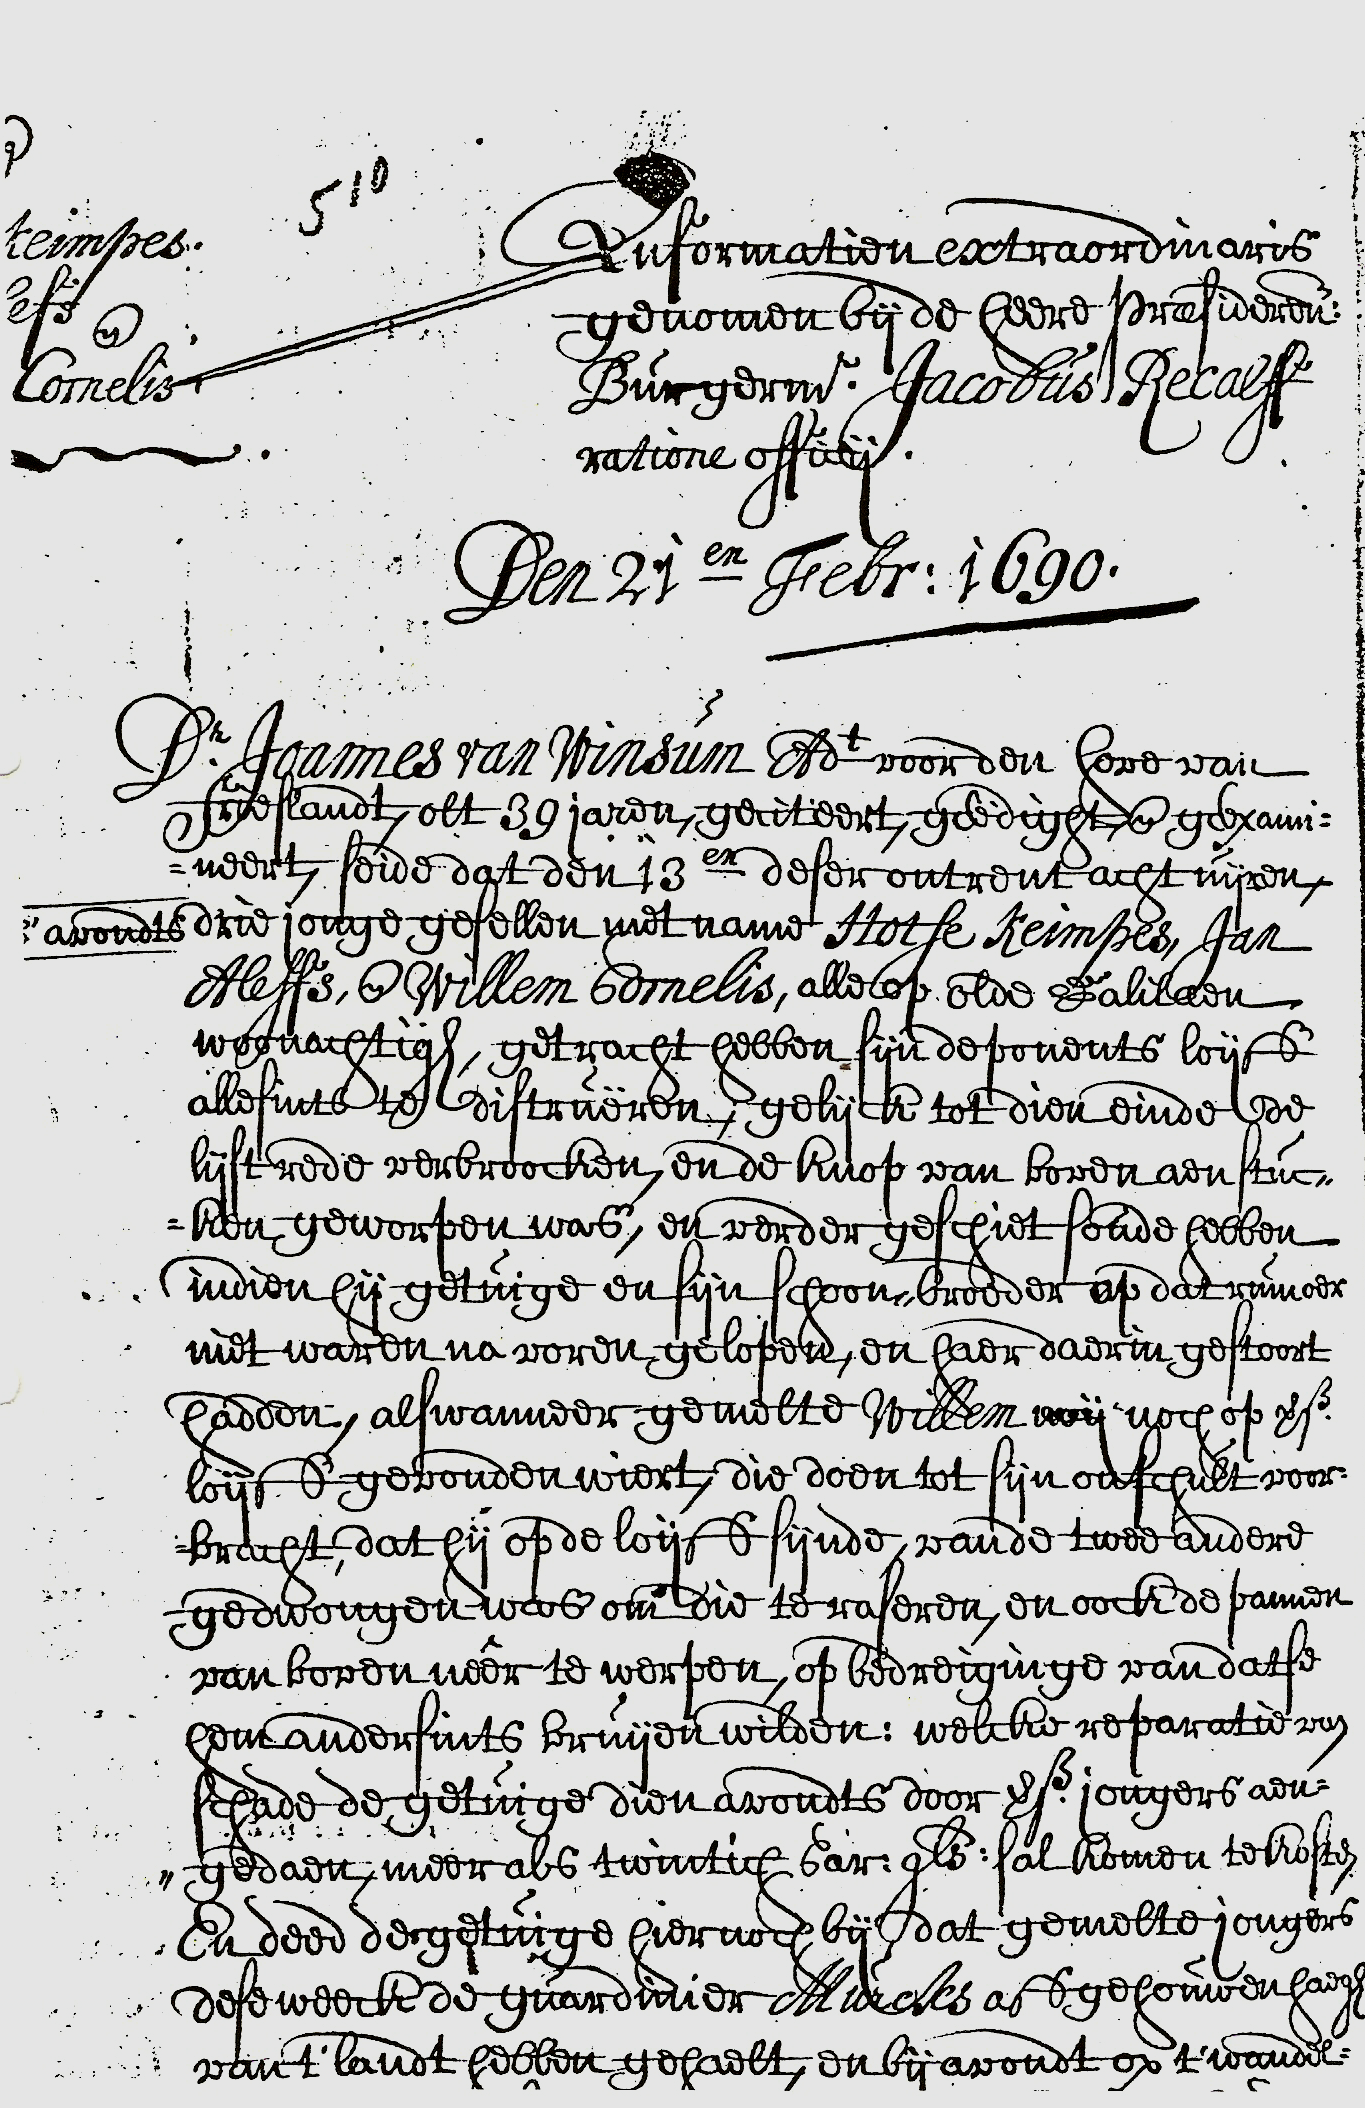 510
keimpes.
Cornelis
Informatien extraordinaris
genomen bij de heere Præsideren:
Burgermr. Jacobus Recalff
ratione officij.
Den 21en Febr: 1690.
Dr. Joannes van Winsum Adt voor den hove van
Frieslandt, olt 39 jaren, geciteert, geëdight, en geexami=
=neert, seide dat den 13en deser ontrent acht uijren,
s'avondts drie jonge gesellen met name Hotse Keimpes, Jan
Aleffs, en Willem Cornelis, alle op olde Galileen
woonachtigh, getracht hebben sijn deponents loijff
allesints te distruëren, gelijck tot dien einde de
lijst rede verbroocken, en de knop van boven aen stuc„
=ken geworpen was, en verder geschiet soude hebben
indien hij getuige en sijn schoon„broeder op dat rumoer
niet waren na voren gelopen, en haer daerin gestoort
hadden, alswanneer gemelte Willem noch op
loijff gevonden wiert, die doen tot sijn onschult voor=
=bracht, dat hij op de loijff sijnde, vande twee andere
gedwongen was om die te raseren, en oock de pannen
van boven neêr te werpen, op bedreiginge van datse
hem andersints bruijen wilden: welcke reparatie van
schade de getuige dien avondts door jongers aen=
„gedaen, meer als twintich Car: gls: sal komen te kosten
En deed de getuige hier noch bij dat gemelte jongers
dese weeck de guardinier Murcks aff gehouwen haegh
van t' landt hebben gehaelt, en bij avondt op t' wandel=